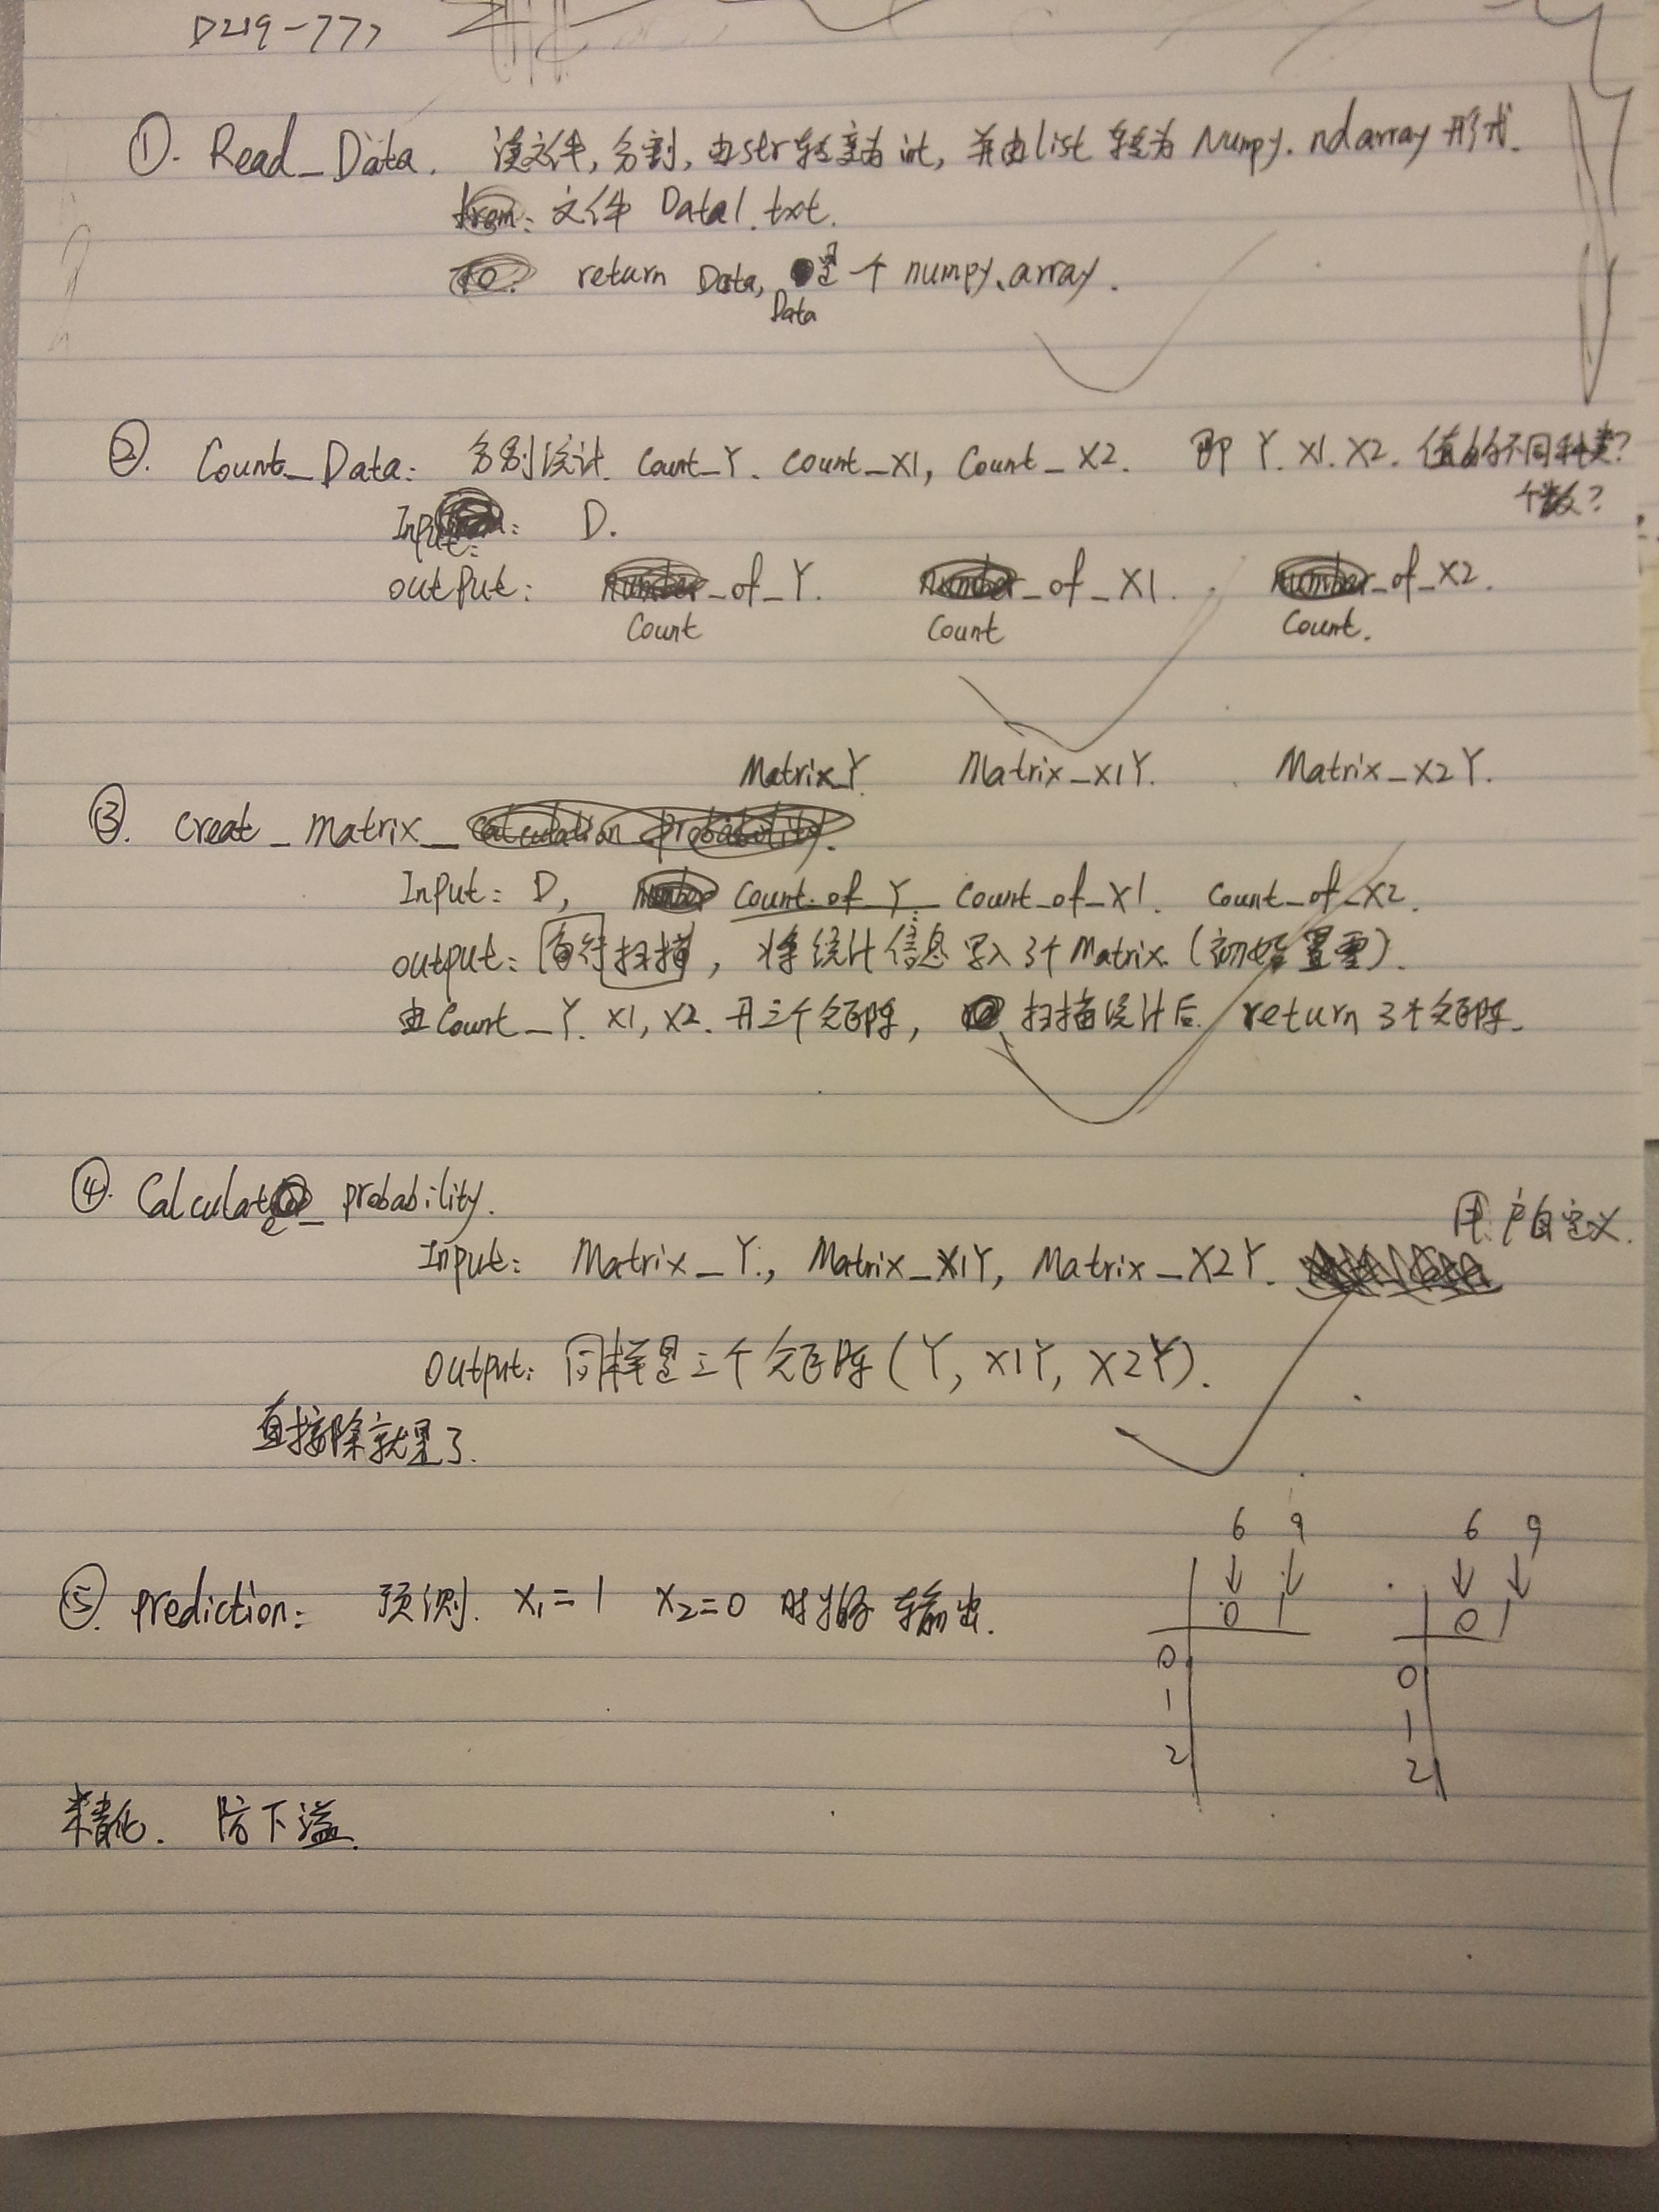 D219-777
①. Read_Data. 读文件, 分割, 由str转变为int, 并由list转变为 Numpy.ndarray 形式.
from: 文件 Data1.txt.
to: return Data, 是一个 numpy.array.
Data
②. Count_Data: 分别统计 Count_Y. Count_X1, Count_X2. 即 Y. X1. X2. 值的不同种类?
个数?
Input: D.
output: Number_of_Y. Number_of_X1. Number_of_X2.
Count Count Count.
Matrix_Y Matrix_X1Y. Matrix_X2Y.
③. Creat_matrix_calculation_probability.
Input: D, Number Count_of_Y. Count_of_X1. Count_of_X2.
output: 每行扫描, 将统计信息写入3个Matrix. (初始置零).
由Count_Y. X1, X2. 开三个矩阵, 扫描统计后 return 3个矩阵.
④. Calculate_probability.
用户自定义.
Input: Matrix_Y., Matrix_X1Y, Matrix_X2Y.
Output: 同样是三个矩阵(Y, X1Y, X2Y).
直接除就是了.
6 9 6 9
↓ ↓ ↓ ↓
⑤. prediction: 预测. X₁=1 X₂=0 时的输出. 0 1 0 1
0 0
1 1
2 2
精化. 防下溢.